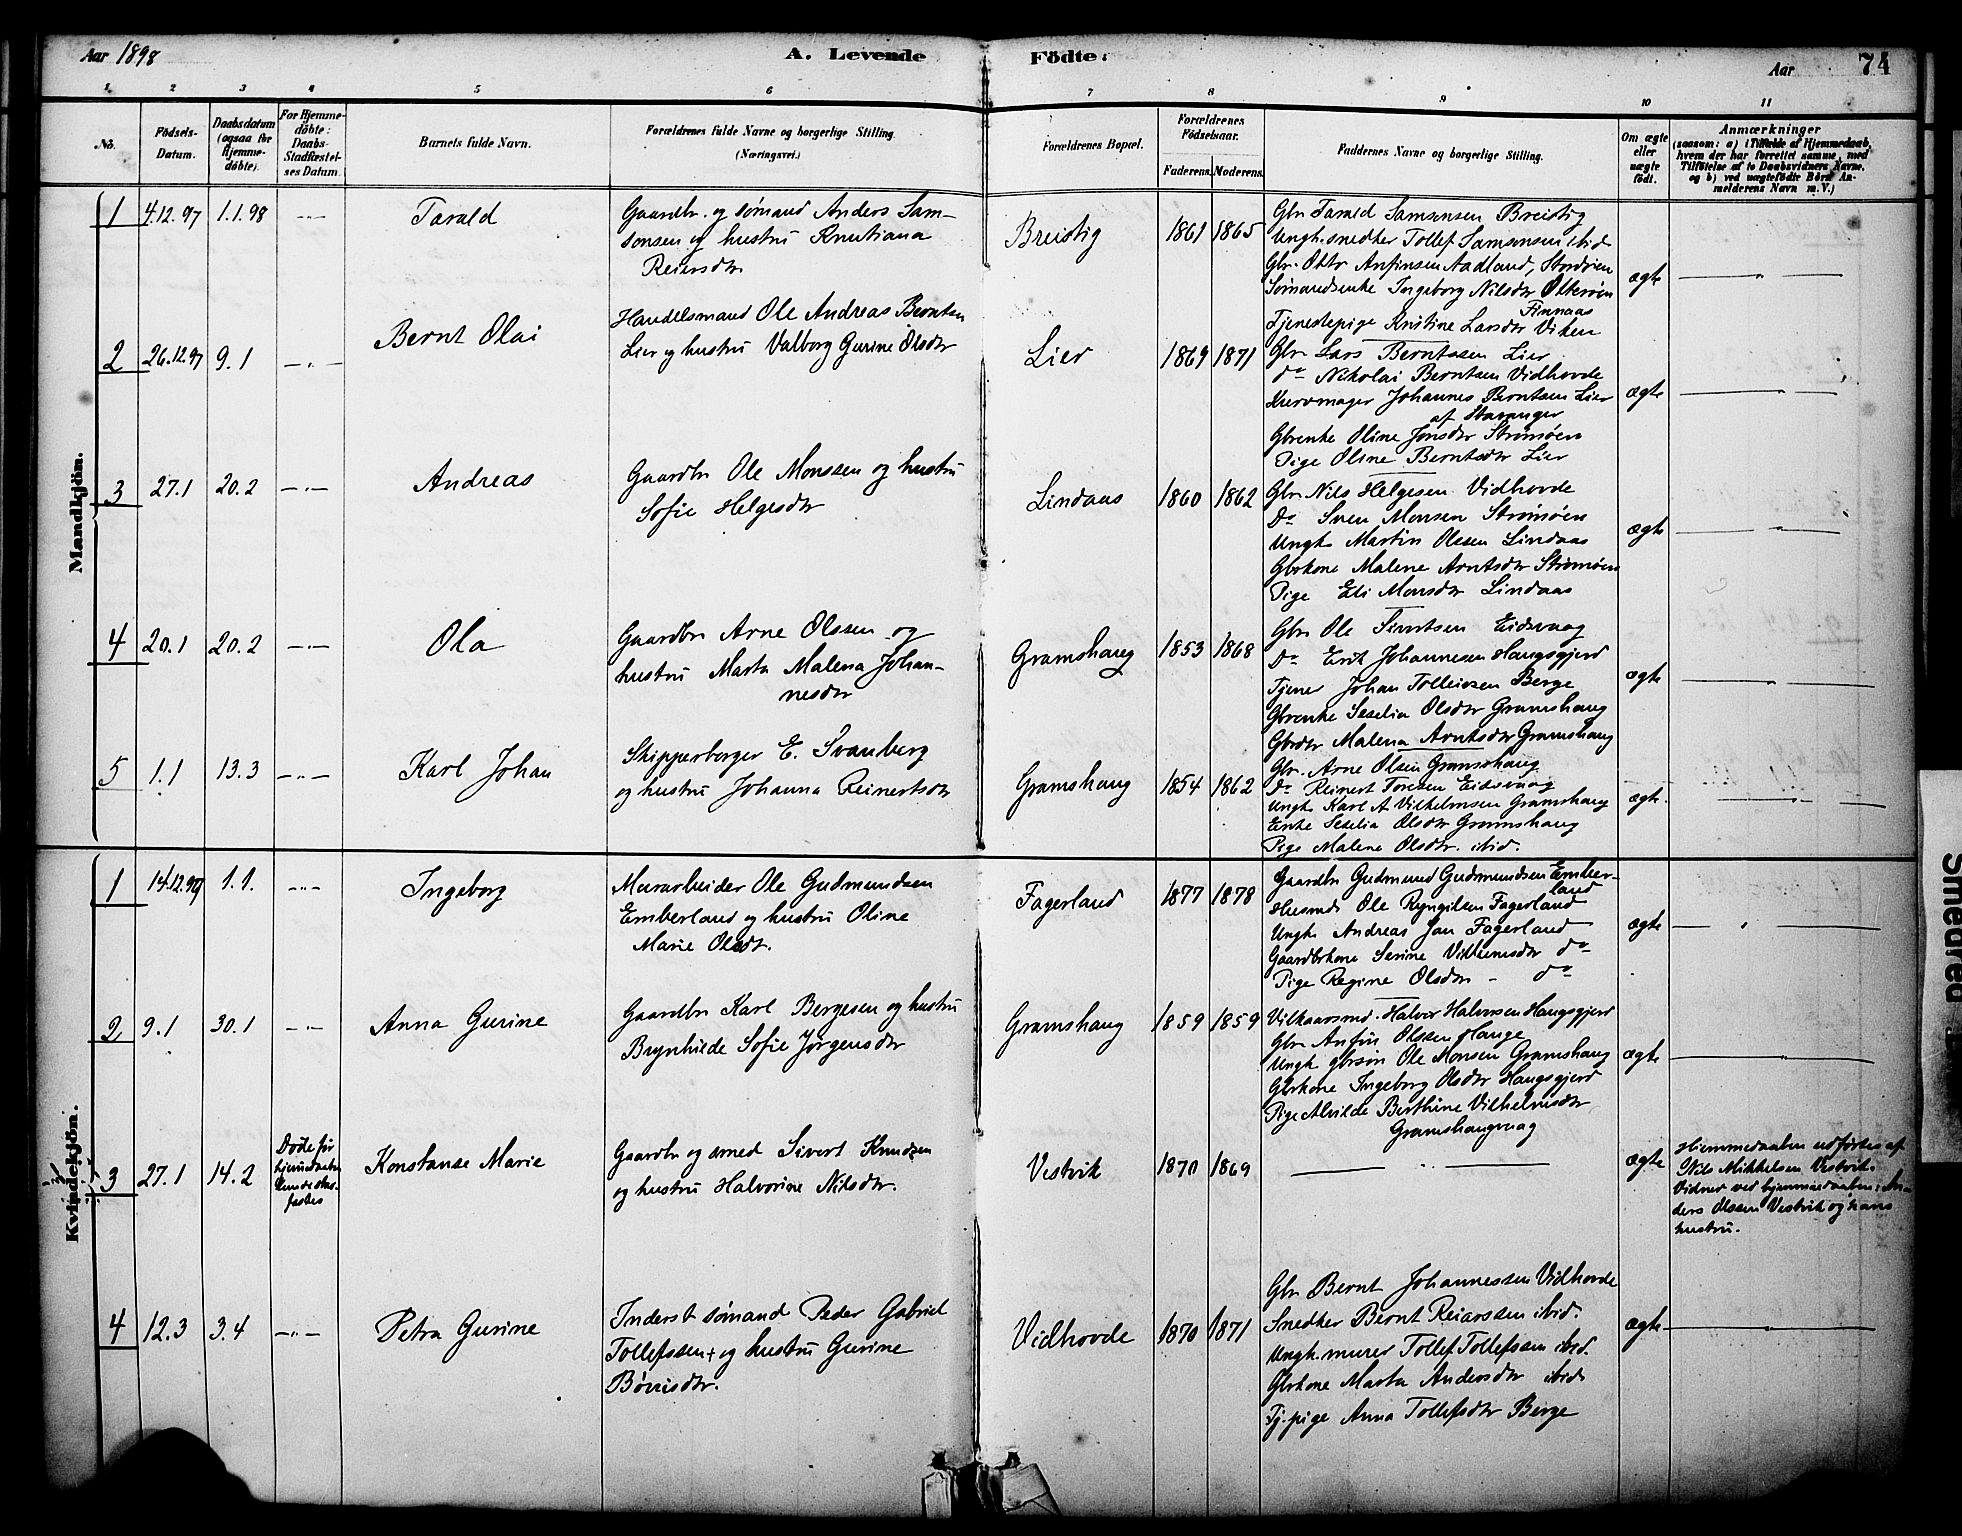 Aar 1898
A. Levende
Födte:
Aar
74
1
2
3
4
5
6
7
8
9
10
11
No.
Födsels-
Datum.
Daabsdatum
(ogsaa for
Hjemme-
döbte).
For Hjemme-
döbte:
Daabs-
Stadfæstel-
ses Datum.
Barnets fulde Navn.
Forældrenes fulde Navne og borgerlige Stilling.
(Næringsvei.)
Forældrenes Bopæl.
Forældrenes
Födselsaar.
Faderens.
Moderens.
Faddernes Navne og borgerlige Stilling.
Om ægte
eller
uægte
født.
Anmærkninger
(saasom: a) i Tilfælde af Hjemmedaab,
hvem der har forrettet samme, med
Tilföielse af to Daabsvidners Navne,
og b) ved uægtefödte Börn An-
melderens Navn m. V.)
Mandkjön.
1
4.12.97
1.1.98
— " —
Tarald
Gaardbr. og sømand Anders Sam-
sonsen og hustru Knutiana
Reiersdtr
Breistig
1861
1865
Gbr Tarald Samsonsen Breistig
Ungk. snedker Tollef Samsonsen ibid
Gbr. Otto Anfinsen Aadland, Stordøen
Sømandsenke Ingeborg Nilsdtr Otterøen
Finnaas
Tjenestepige Kristine Larsdtr Viken
ægte
— " —
2
26.12.97
9.1
— " —
Bernt Olai
Handelsmand Ole Andreas Berntsen
Lier og hustru Valborg Gurine Olsdtr
Lier
1869
1871
Gbr Lars Berntssen Lier
do Nikolai Berntsen Vidhovde
Kurvmager Johannes Berntsen Lier
af Stavanger
Gbrenke Oline Jonsdtr Strømøen
Pige Oline Berntsdtr Lier
ægte
— " —
3
27.1
20.2
— " —
Andreas
Gaardbr Ole Monssen og hustru
Sofie Helgesdtr
Lindaas
1860
1862
Gbr Nils Helgesen Vidhovde
Do Sven Monsen Strømøen
Ungk. Martin Olssen Lindaas
Gbrkone Malene Arntsdtr Strømøen
Pige Eli Monsdtr Lindaas
ægte
— " —
4
20.1
20.2
— " —
Ola
Gaardbr Arne Olssen og
hustru Marta Malena Johan-
nesdtr
Gramshaug
1853
1868
Gbr Ole Sivertsen Eidsvaag
Do Erik Johannesen Haugsgjerd
Tjener Johan Tolleivsen Berge
Gbrenke Seselia Olsdtr Gramshaug
Gbrdtr Malena Arntsdtr Gramshaug
ægte
— " —
5
1.1
13.3
— " —
Karl Johan
Skipperborger E. Svanberg
og hustru Johanna Reinertsdtr
Gramshaug
1854
1862
Gbr. Arne Olsen Gramshaug
Do Reinert Toresen Eidsvaag
Ungk Karl A Vilhelmsen Gramshaug
Enke Seselia Olsdtr Gramshaug
Pige Malene Olsdtr. ibid.
ægte.
— " —
Kvindekjön.
1
14.12.97
1.1.
— " —
Ingeborg
Murarbeider Ole Gudmundsen
Emberland og hustru Oline
Marie Olsdt.
Fagerland
1877
1878
Gaardbr Gudmund Gudmundsen Ember-
land
Husmd Ole Ryngilsen Fagerland
Ungk Andreas Jan Fagerland
Gaardbrkone Serine Villumsdtr do
Pige Regine Olsdtr - do
ægte
— " —
2
9.1
30.1
— " —
Anna Gurine
Gaardbr Karl Bergesen og hustru
Brynhilde Sofie Jørgensdtr
Gramshaug
1859
1859
Vilkaarsmd. Halvor Halvorsen Haugsgjerd
Gbr Anfin Olssen Hauge
Ungk. gbrsøn Ole Monsen Gramshaug
Gbrkone Ingeborg Olsdtr Haugsgjerd
Pige Alvilde Berthine Vilhelmsdtr
Gramshaugvaag
ægte
— " —
3
27.1
14.2
Døde før
hjemmedaaben
kunde stad-
fæstes
Konstanse Marie
Gaardbr og smed Sivert Knudsen
og hustru Halvorine Nilsdtr.
Vestvik
1870
1869
— " —
ægte
Hjemmedaaben udførtes af
Nils Mikkelsen Vestvik.
Vidner ved hjemmedaaben: An-
ders Olssen Vestvik og hans
hustru.
4
12.3
3.4
— " —
Petra Gurine
Inderst sømand Peder Gabriel
Tollefssen + og hustru Gurine
Børrisdtr.
Vidhovde
1870
1871
Gbr Bernt Johannessen Vidhovde
Snedker Bernt Reiarssen ibid.
Ungk. murer Tollef Tollefssen ibid.
Gbrkone Marta Andersdtr ibid
Tj.pige Anna Tollefsdtr Berge
ægte
— " —
Smedred